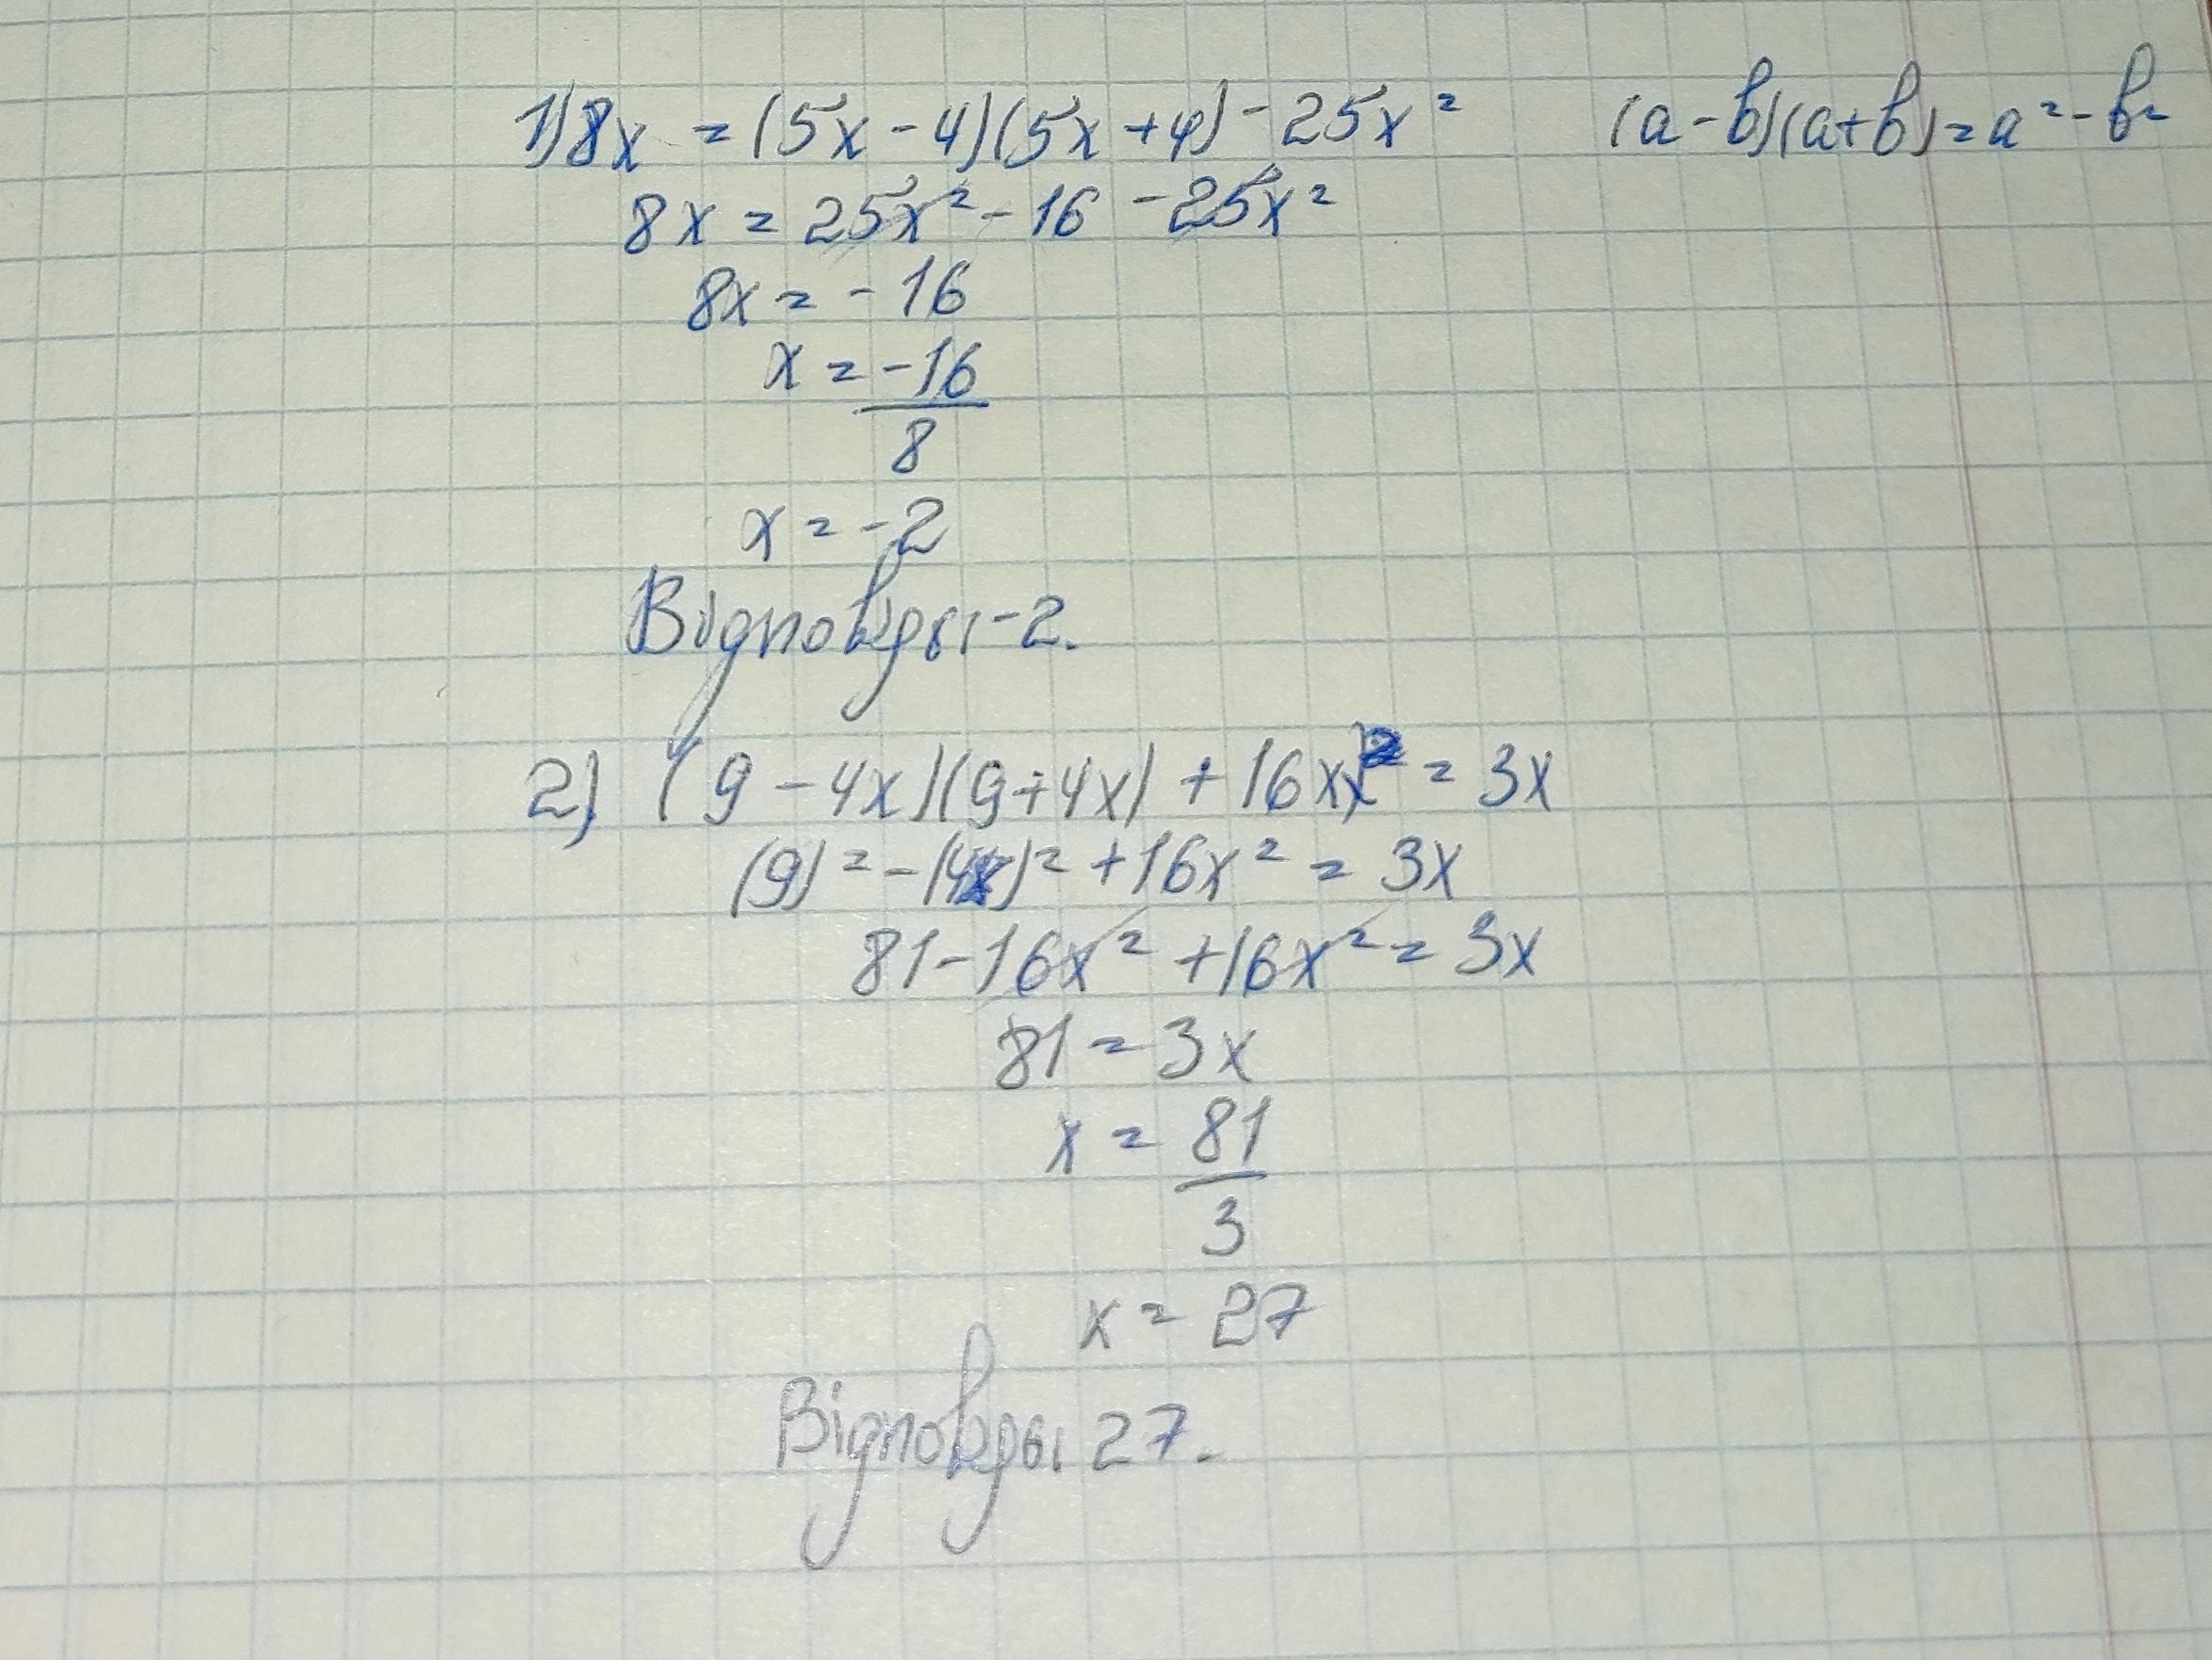 1) 8x = (5x - 4)(5x + 4) - 25x² (a - b)(a + b) = a² - b²
8x = 25x² - 16 - 25x²
8x = - 16
x = -16/8
x = -2
Відповідь: -2.
2) (9 - 4x)(9 + 4x) + 16x² = 3x
(9)² - (4x)² + 16x² = 3x
81 - 16x² + 16x² = 3x
81 = 3x
x = 81/3
x = 27
Відповідь: 27.